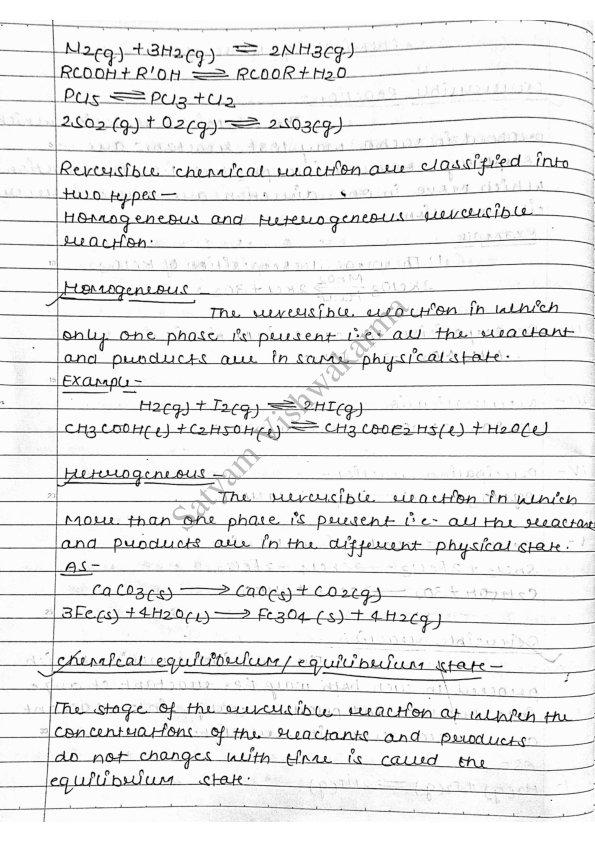 N2(g) + 3H2(g) ⇌ 2NH3(g)
RCOOH + R'OH ⇌ RCOOR + H2O
PCl5 ⇌ PCl3 + Cl2
2SO2(g) + O2(g) ⇌ 2SO3(g)
Reversible chemical reaction are classified into
two types—
Homogeneous and Heterogeneous reversible
reaction.
Homogeneous—
The reversible reaction in which
only one phase is present i.e. all the reactant
and products are in same physical state.
Example-
H2(g) + I2(g) ⇌ 2HI(g)
CH3COOH(l) + C2H5OH(l) ⇌ CH3COOC2H5(l) + H2O(l)
Heterogeneous—
The reversible reaction in which
more than one phase is present i.e- all the reactant
and products are in the different physical state.
AS-
CaCO3(s) ⟶ CaO(s) + CO2(g)
3Fe(s) + 4H2O(l) ⟶ Fe3O4(s) + 4H2(g)
Chemical equilibrium/equilibrium state—
The stage of the reversible reaction at which the
concentrations of the reactants and products
do not changes with time is called the
equilibrium state.
Satyam Vishwakarma